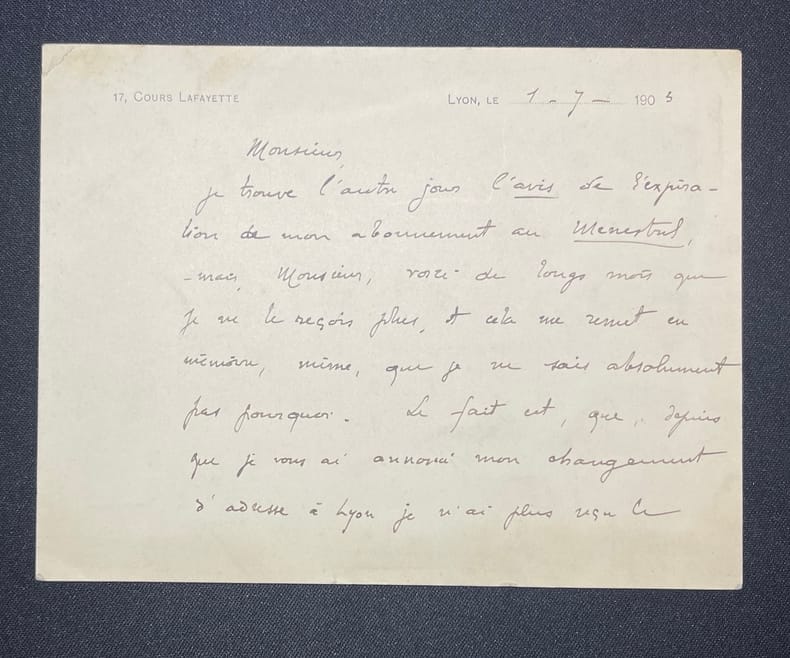 17, COURS LAFAYETTE
LYON, LE 1 - 7 - 1905
Monsieur,
je trouve l'autre jour l'avis de l'expira-
tion de mon abonnement au Menestrel,
-mais, Monsieur, voici de longs mois que
je ne le reçois plus, et cela me remet en
mémoire, même, que je ne sais absolument
pas pourquoi. Le fait est, que, depuis
que je vous ai annoncé mon changement
d'adresse à Lyon je n'ai plus reçu le